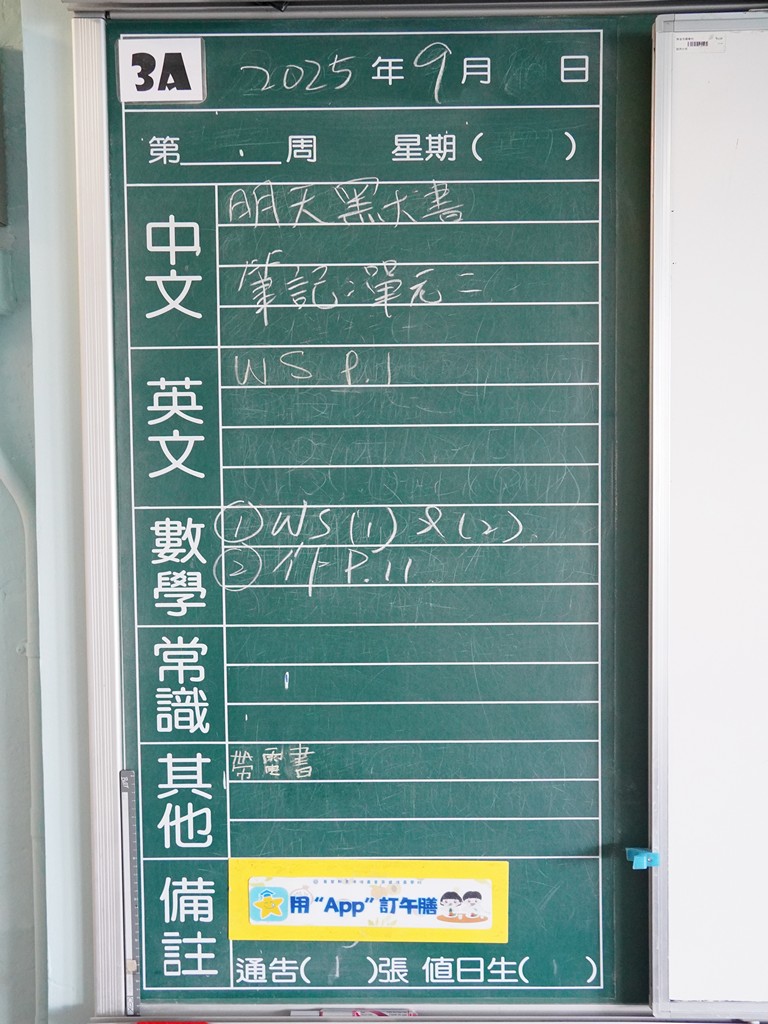 3A 2025年9月 日
第 周 星期( )
中文
明天黑大書
筆記:單元二
英文
WS P.1
數學
① WS(1)&(2)
② 作 P.11
常識
其他
帶電書
備註
用“App”訂午膳
通告( )張 值日生( )